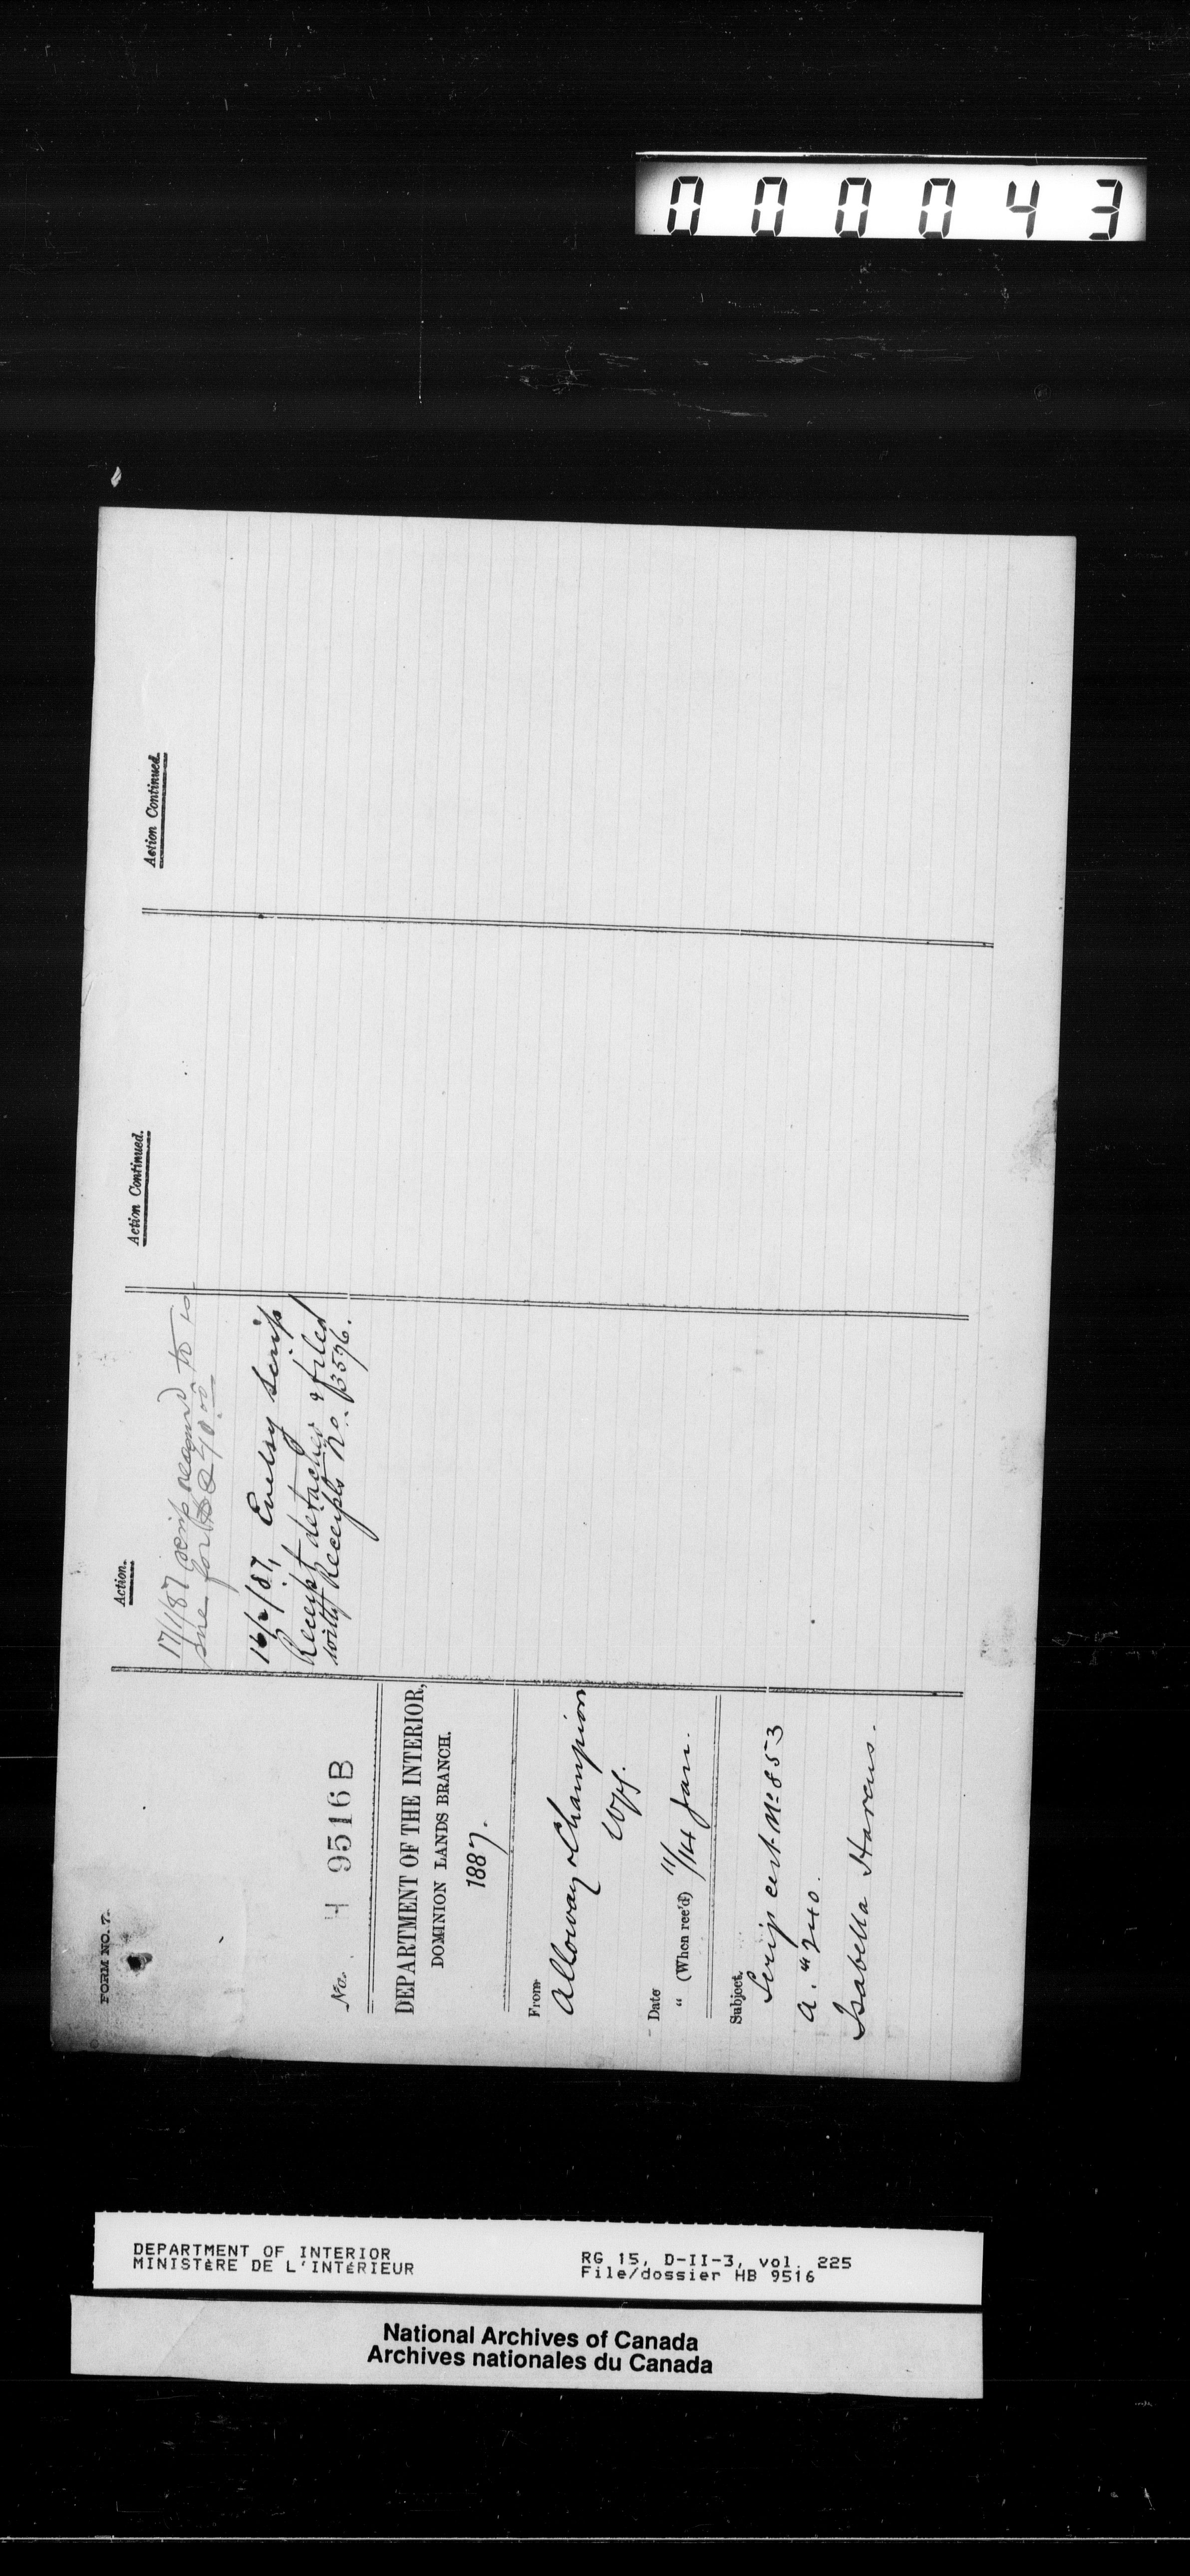 000043
FORM NO. 7.
No. H 9516 B
DEPARTMENT OF THE INTERIOR,
DOMINION LANDS BRANCH.
1887.
From
Alloway & Champion
Wpg.
Date 11/
" (When rec'd) 14 Jan.
Subject.
Scrip cert. No. 853
A. " 240.
Isabella Harcus.
Action.
17/1/87 scrip to
for $240.00
16/2/87, Scrip
Receipt detached & filed
with Receipts No. 13596.
Action Continued.
Action Continued.
DEPARTMENT OF INTERIOR
MINISTÈRE DE L'INTÉRIEUR
RG 15, D-II-3, vol. 225
File/dossier HB 9516
National Archives of Canada
Archives nationales du Canada